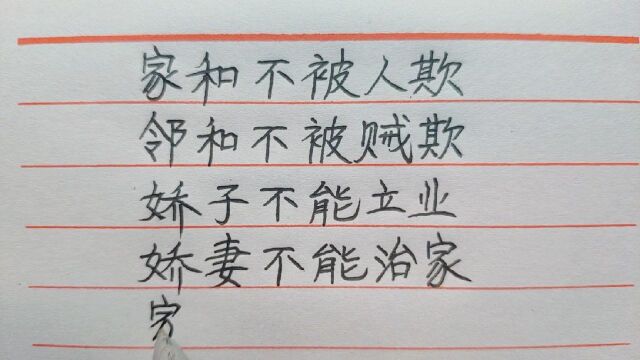 家和不被人欺
邻和不被贼欺
娇子不能立业
娇妻不能治家